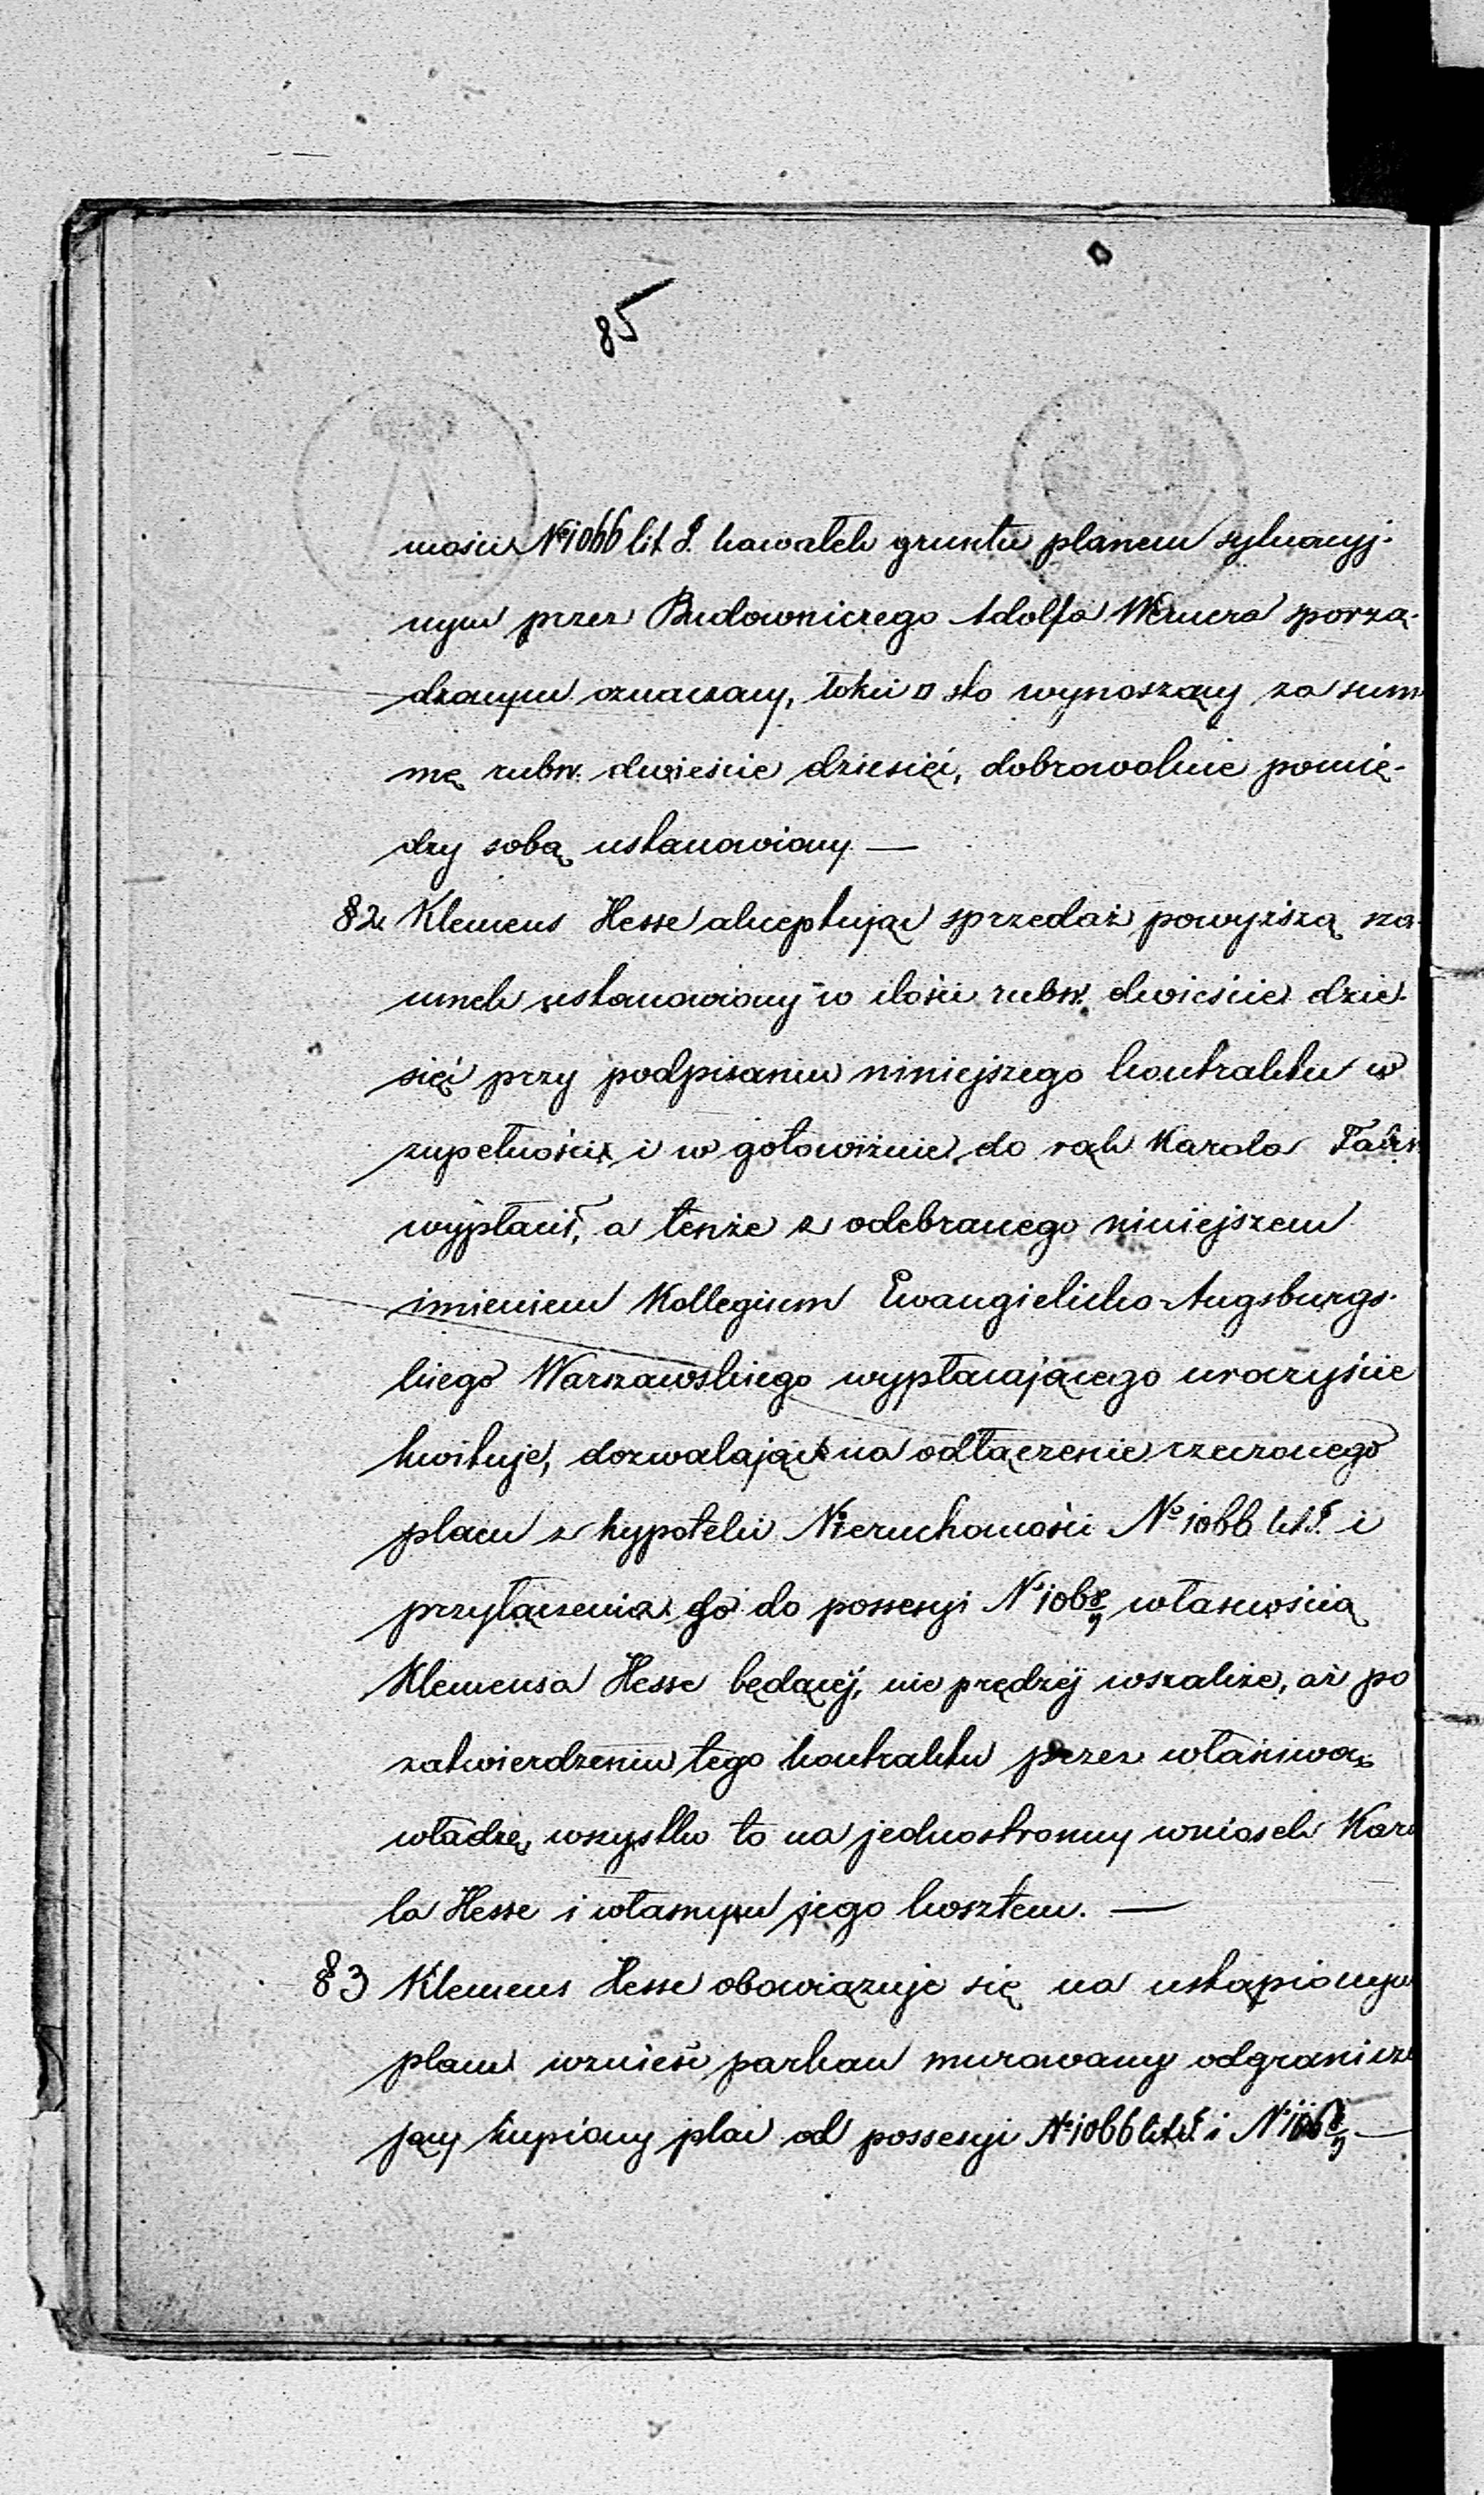 85
mości № 1066 lit. J. kawałek gruntu planem sytuacyj-
nym przez Budowniczego Adolfa Wernera sporzą-
dzonym oznaczony, łokci □ sto wynoszący za sum-
mę rubsr. dwieście dziesięć, dobrowolnie pomię-
dzy sobą ustanowiony —
§ 2. Klemens Hesse akceptując sprzedaż powyższą sza-
cunek ustanowiony w ilości rubsr. dwieście dzie-
sięć przy podpisaniu niniejszego kontraktu w
zupełności i w gotowiźnie do rąk Karola
wypłacił, a tenże z odebranego niniejszem
imieniem Kollegium Ewangielicko-Augsburgs-
kiego Warszawskiego wypłacającego uroczyście
kwituje, dozwalając na odłączenie rzeczonego
placu z hypoteki Nieruchomości № 1066 lit. J. i
przyłączenia go do possesyi № 1068/9 własnością
Klemensa Hesse będącéj, nie prędzéj wszakże, aż po
zatwierdzeniu tego kontraktu przez właściwą
władzę, wszystko to na jednostronny wniosek Karo
la Hesse i własnym jego kosztem. —
§ 3 Klemens Hesse obowiązuje się na ustąpionym
placu wznieść parkan murowany odgranicza
jący kupiony plac od possesyi № 1066 lit. J. i №